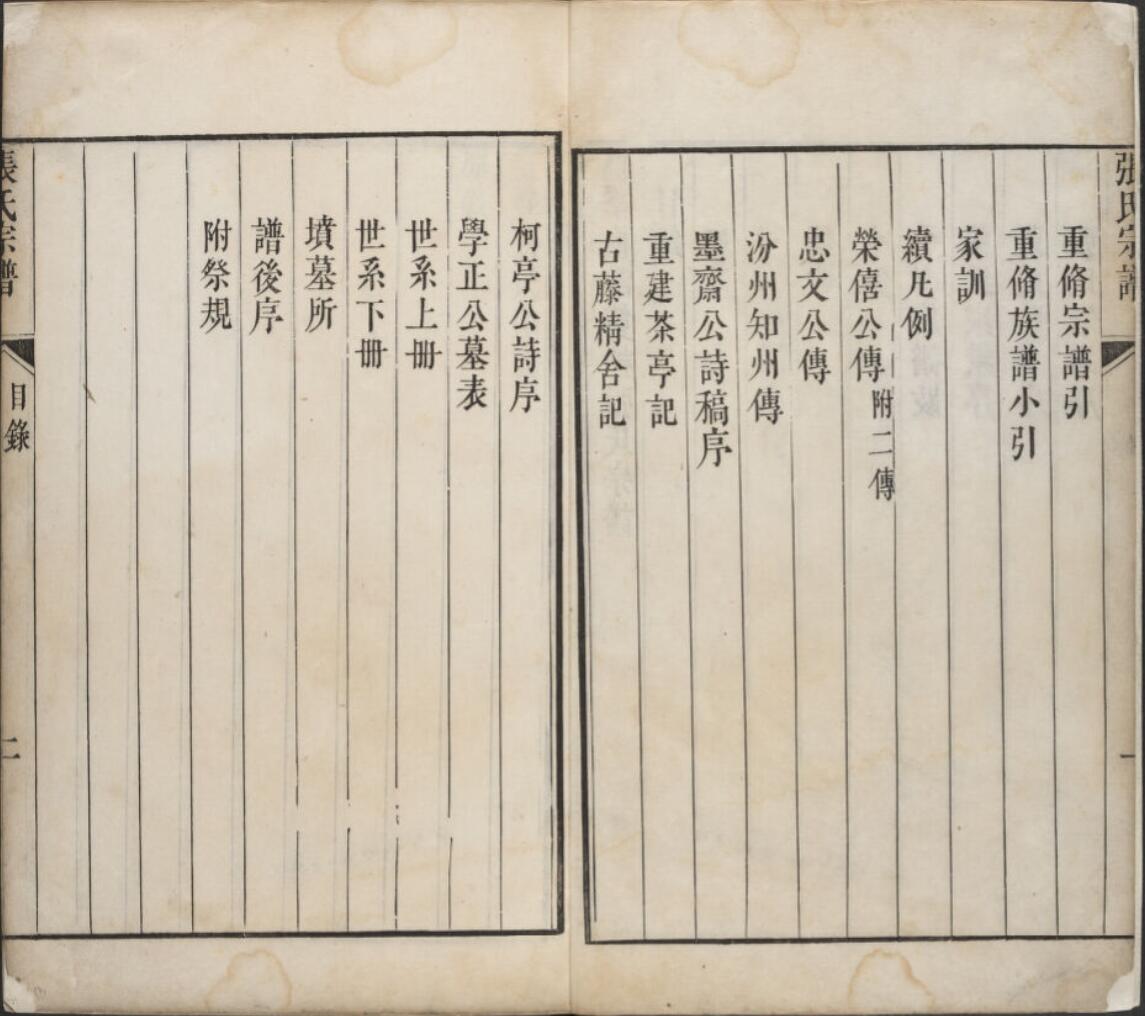 張氏宗譜
一
重脩宗譜引
重脩族譜小引
家訓
續凡例
榮僖公傳附二傳
忠文公傳
汾州知州傳
墨齋公詩稿序
重建茶亭記
古藤精舍記
柯亭公詩序
學正公墓表
世系上冊
世系下冊
墳墓所
譜後序
附祭規
張氏宗譜
目錄
二